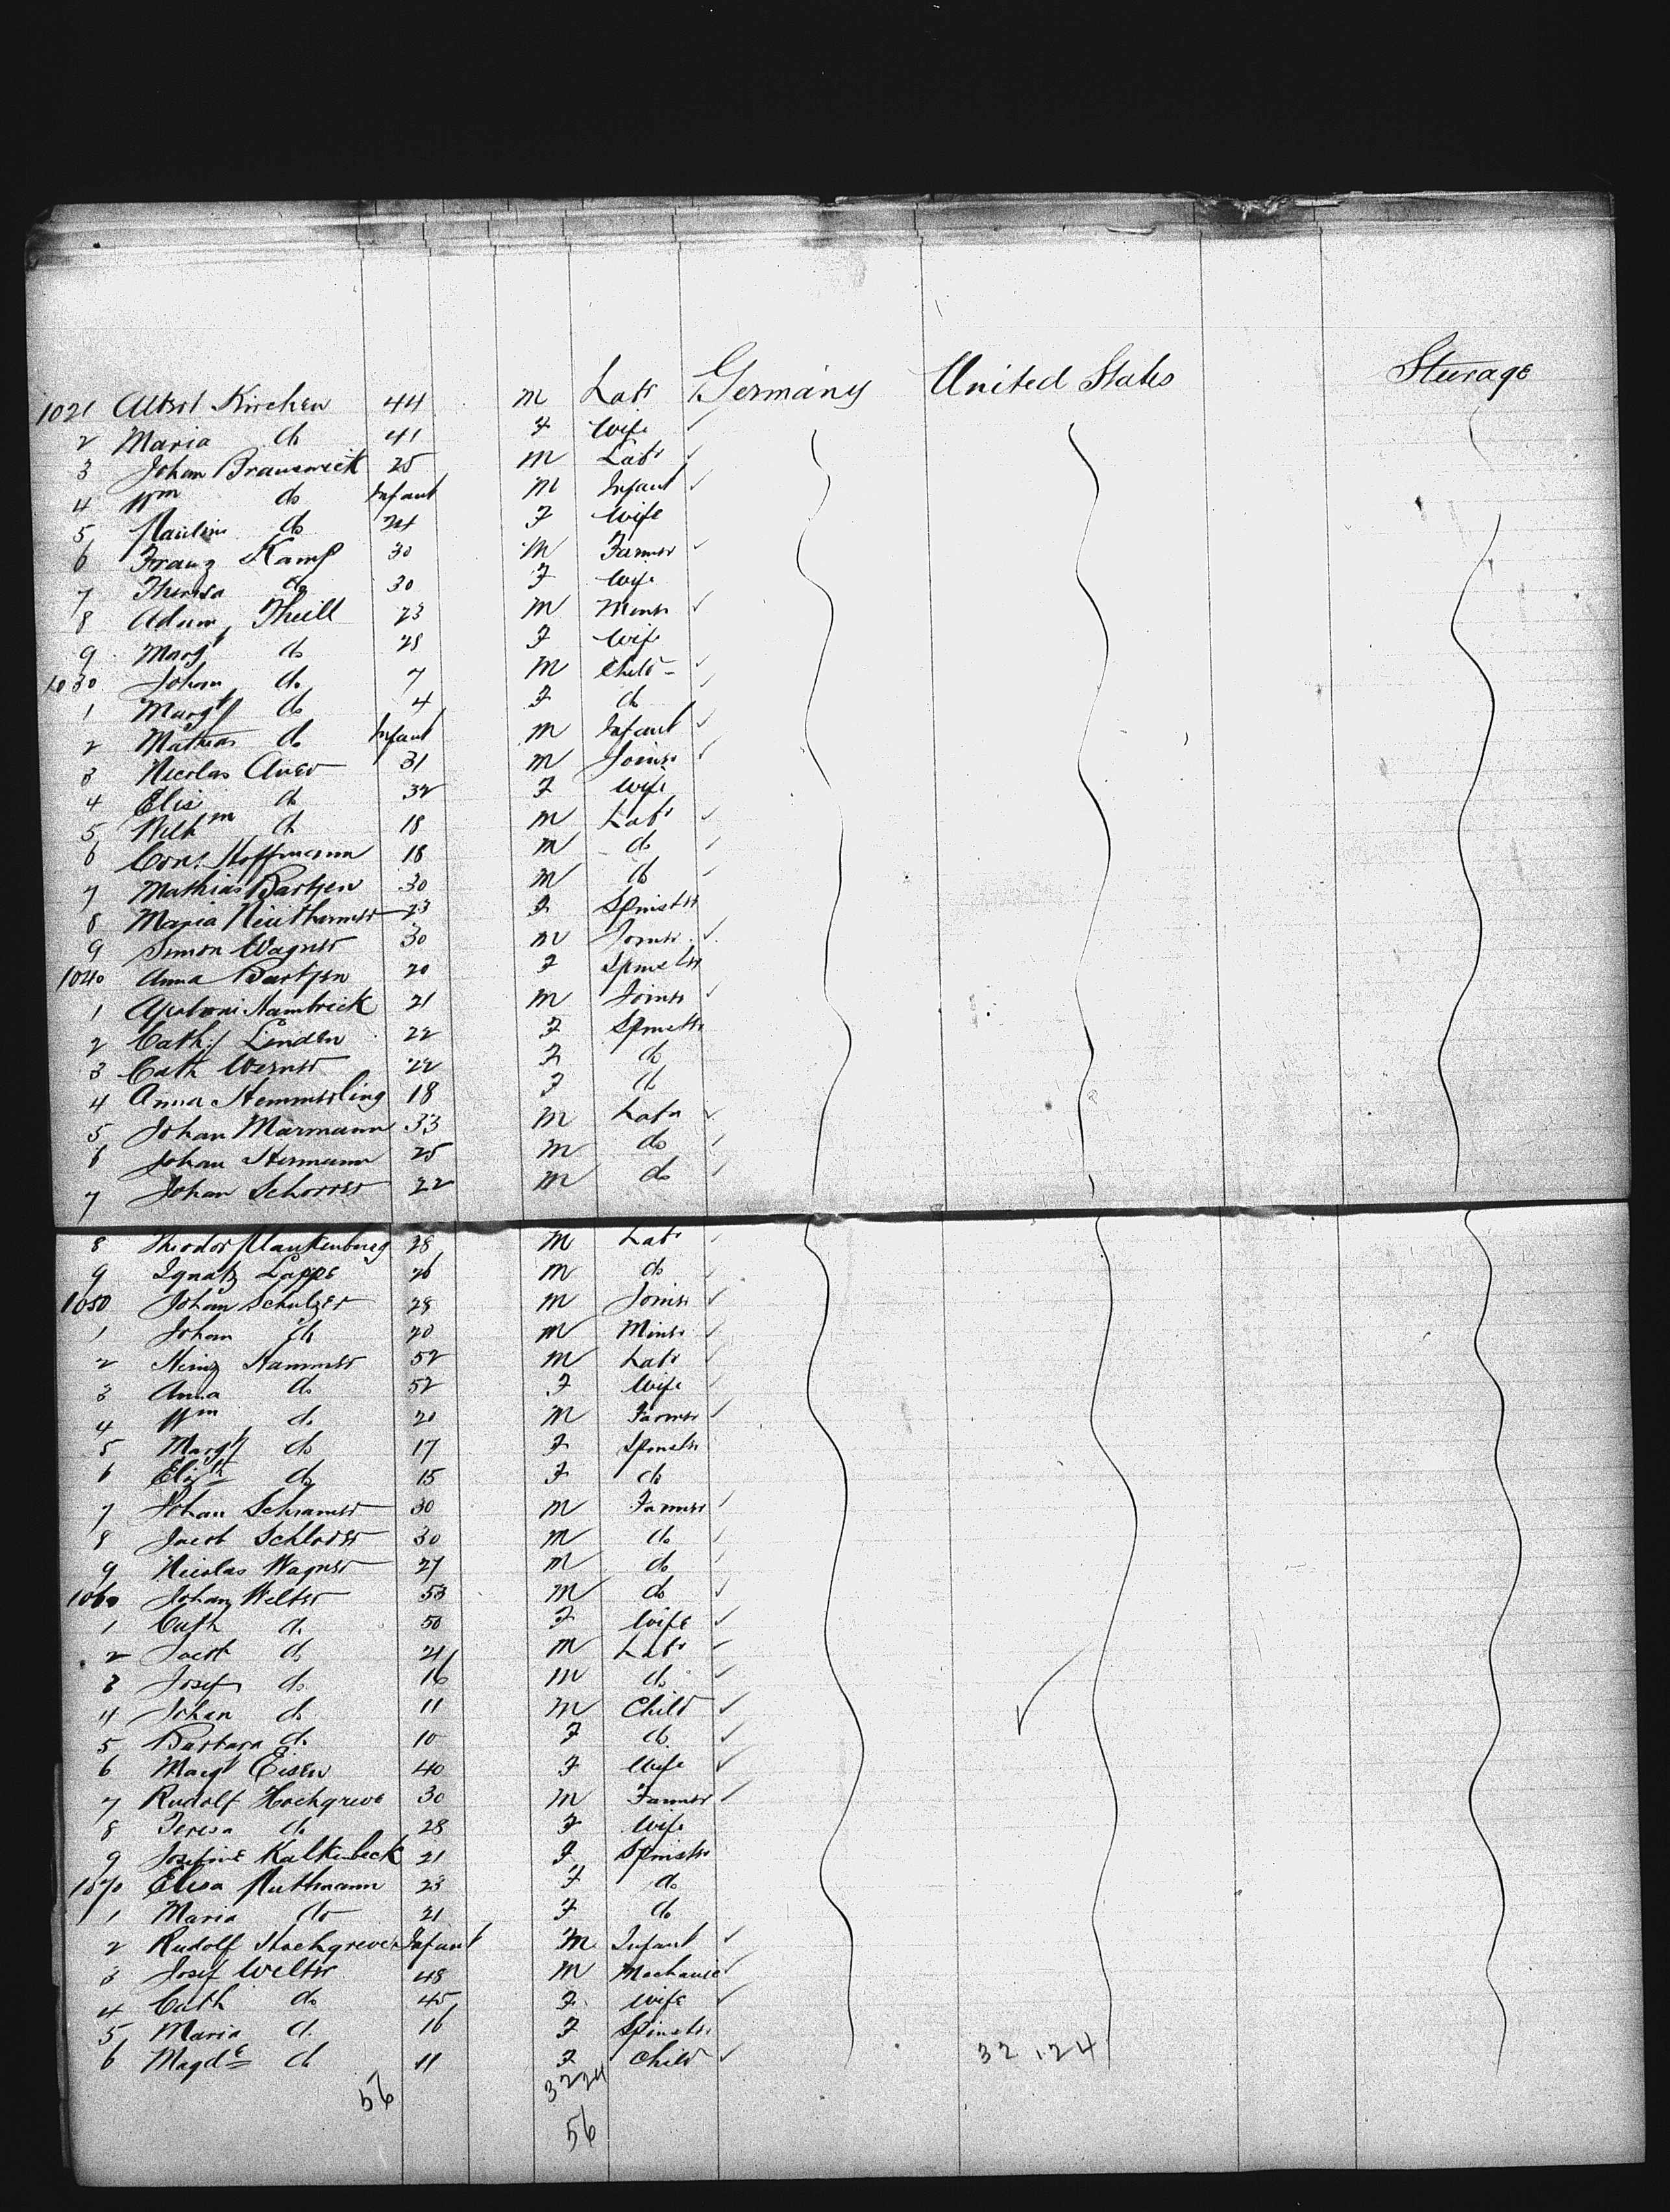 1021 Albert Kirchen 44 M Labr Germany United States Steerage
2 Maria do 41 F Wife
3 Johan Braunsweick 25 M Labr
4 Wm do Infant M Infant
5 Pauline do 24 F Wife
6 Franz Kamp 30 M Farmer
7 Theresa do 30 F Wife
8 Adam Theill 23 M Miner
9 Margt do 28 F Wife
1030 Johan do 7 M Child
1 Margt do 4 F do
2 Mathias do Infant M Infant
3 Nicolas Auer 31 M Joiner
4 Elis do 32 F Wife
5 Wilhm do 18 M Labr
6 Con. Hoffmann 18 M do
7 Mathias Bartzen 30 M do
8 Maria 23 F Spinster
9 Simon Wagner 30 M Joiner
1040 Anna Bartzen 20 F Spinster
1 Apoloni Hambrick 21 M Joiner
2 Cath. Linden 22 F Spinster
3 Cath Werner 22 F do
4 Anna Hemmerling 18 F do
5 Johan Marmann 33 M Labr
6 Johan Hermann 25 M do
7 Johan Schorrer 22 M do
8 Theodor Plankenbureg 28 M Labr
9 Ignatz Lappe 26 M do
1050 Johan Schulzer 28 M Joiner
1 Johan do 20 M Miner
2 Heinz Hammer 52 M Labr
3 Anna do 52 F Wife
4 Wm do 20 M Farmer
5 Margt do 17 F Spinster
6 Elizth do 15 F do
7 Johan Schramer 30 M Farmer
8 Jacob Schlorer 30 M do
9 Nicolas Wagner 27 M do
1060 Johan Welter 53 M do
1 Cath do 50 F Wife
2 Jacob do 21 M Labr
3 Josef do 16 M do
4 Johan do 11 M Child
5 Barbara do 10 F do
6 Margt Eisen 40 F Wife
7 Rudolf Hochgreve 30 M Farmer
8 Teresa do 28 F Wife
9 Josefine Kalkenbeck 21 F Spinster
1070 Elisa Puthmann 23 F do
1 Maria do 21 F do
2 Rudolf Hochgreve Infant M Infant
3 Josef Welter 48 M Mechanic
4 Cath do 45 F Wife
5 Maria do 16 F Spinster
6 Magde do 11 F Child 32 . 24
56 32 24
56